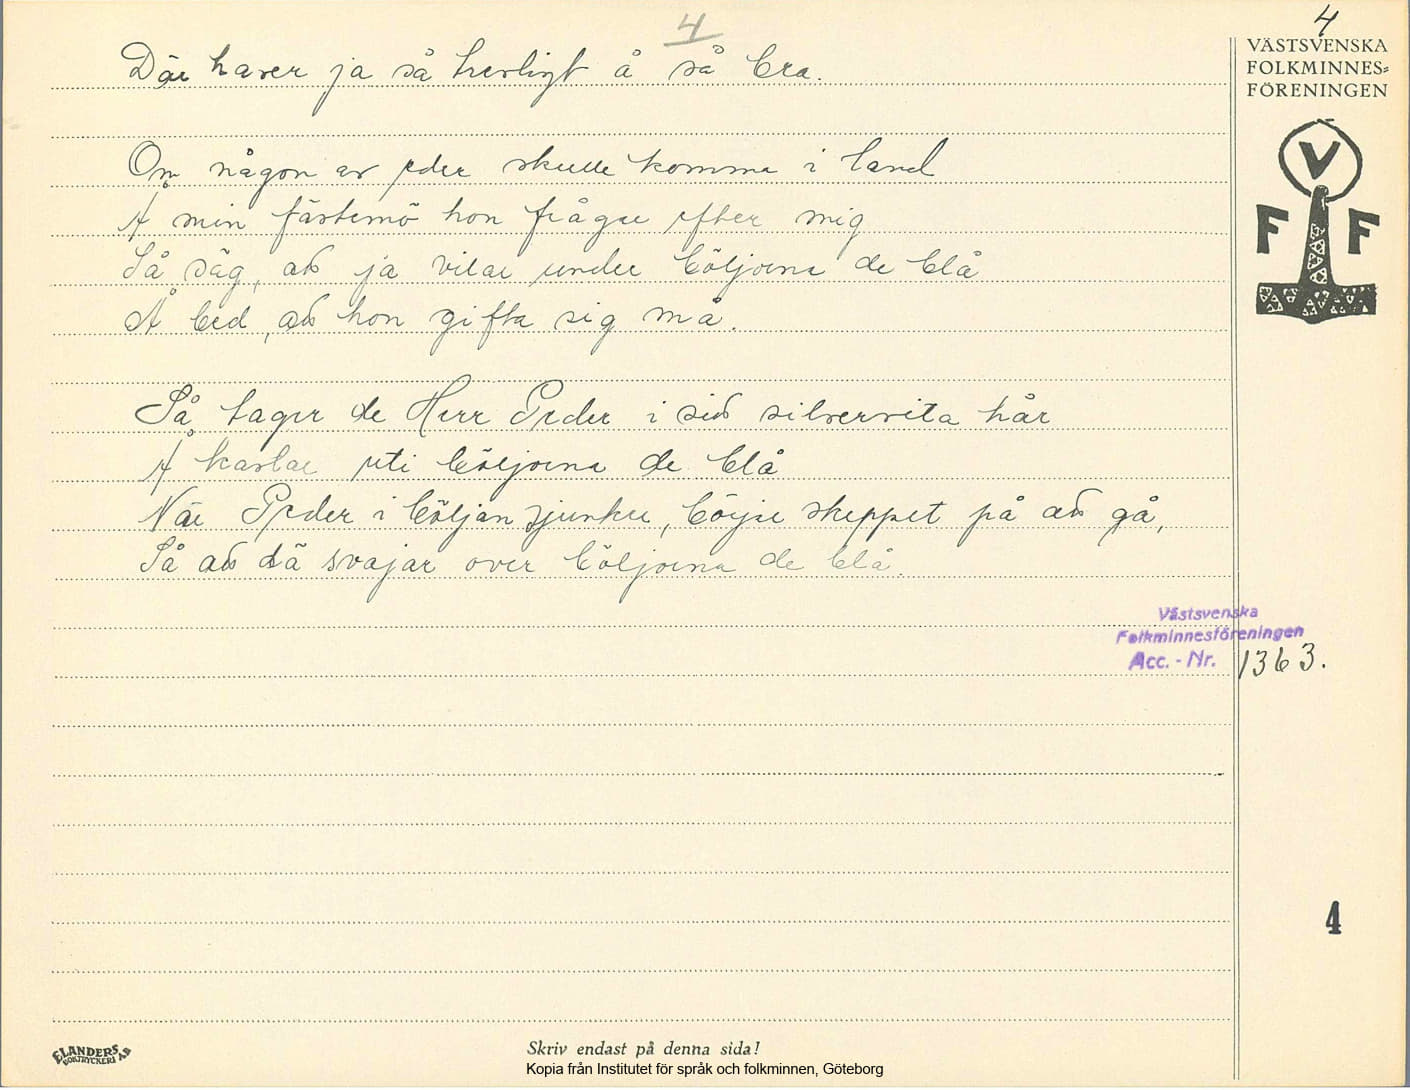 4
4
VÄSTSVENSKA
FOLKMINNES=
FÖRENINGEN
V
F F
Där haver ja så trevligt å så bra.
Om någon av eder skulle komma i land
Å min fästemö hon frågar efter mig
Så säg, att ja vilar under böljorna de blå
Å bed, att hon gifta sig må.
Så tager de Herr Peder i sitt silvervita hår
Å kastar uti böljorna de blå
När Peder i böljan sjunker, börjar skeppet på att gå,
Så att dä svajar över böljorna de blå.
Västsvenska
Folkminnesföreningen
Acc. - Nr. 1363.
4
ELANDERS
BOKTRYCKERI A.B
Skriv endast på denna sida!
Kopia från Institutet för språk och folkminnen, Göteborg